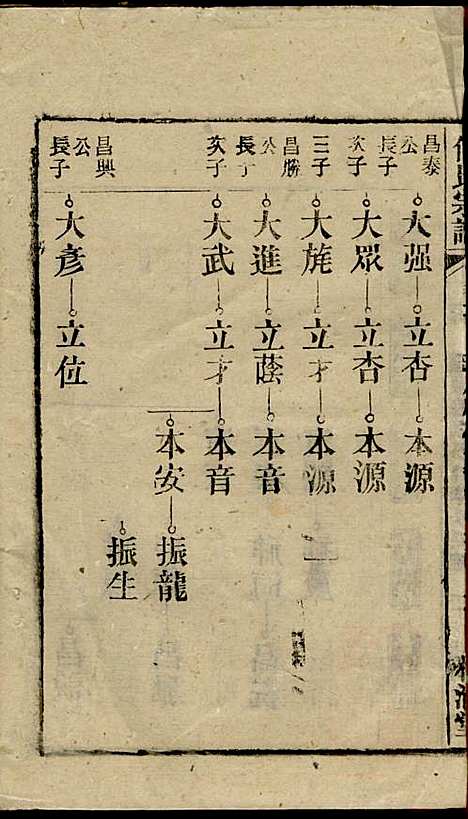 昌泰公長子
大强 立杏 本源
次子
大眾 立杏 本源
三子
大旄 立才 本源
昌勝公長子
大進 立蔭 本音
次子
大武 立才 本音
本安 振龍
振生
昌興公長子
大彥 立位